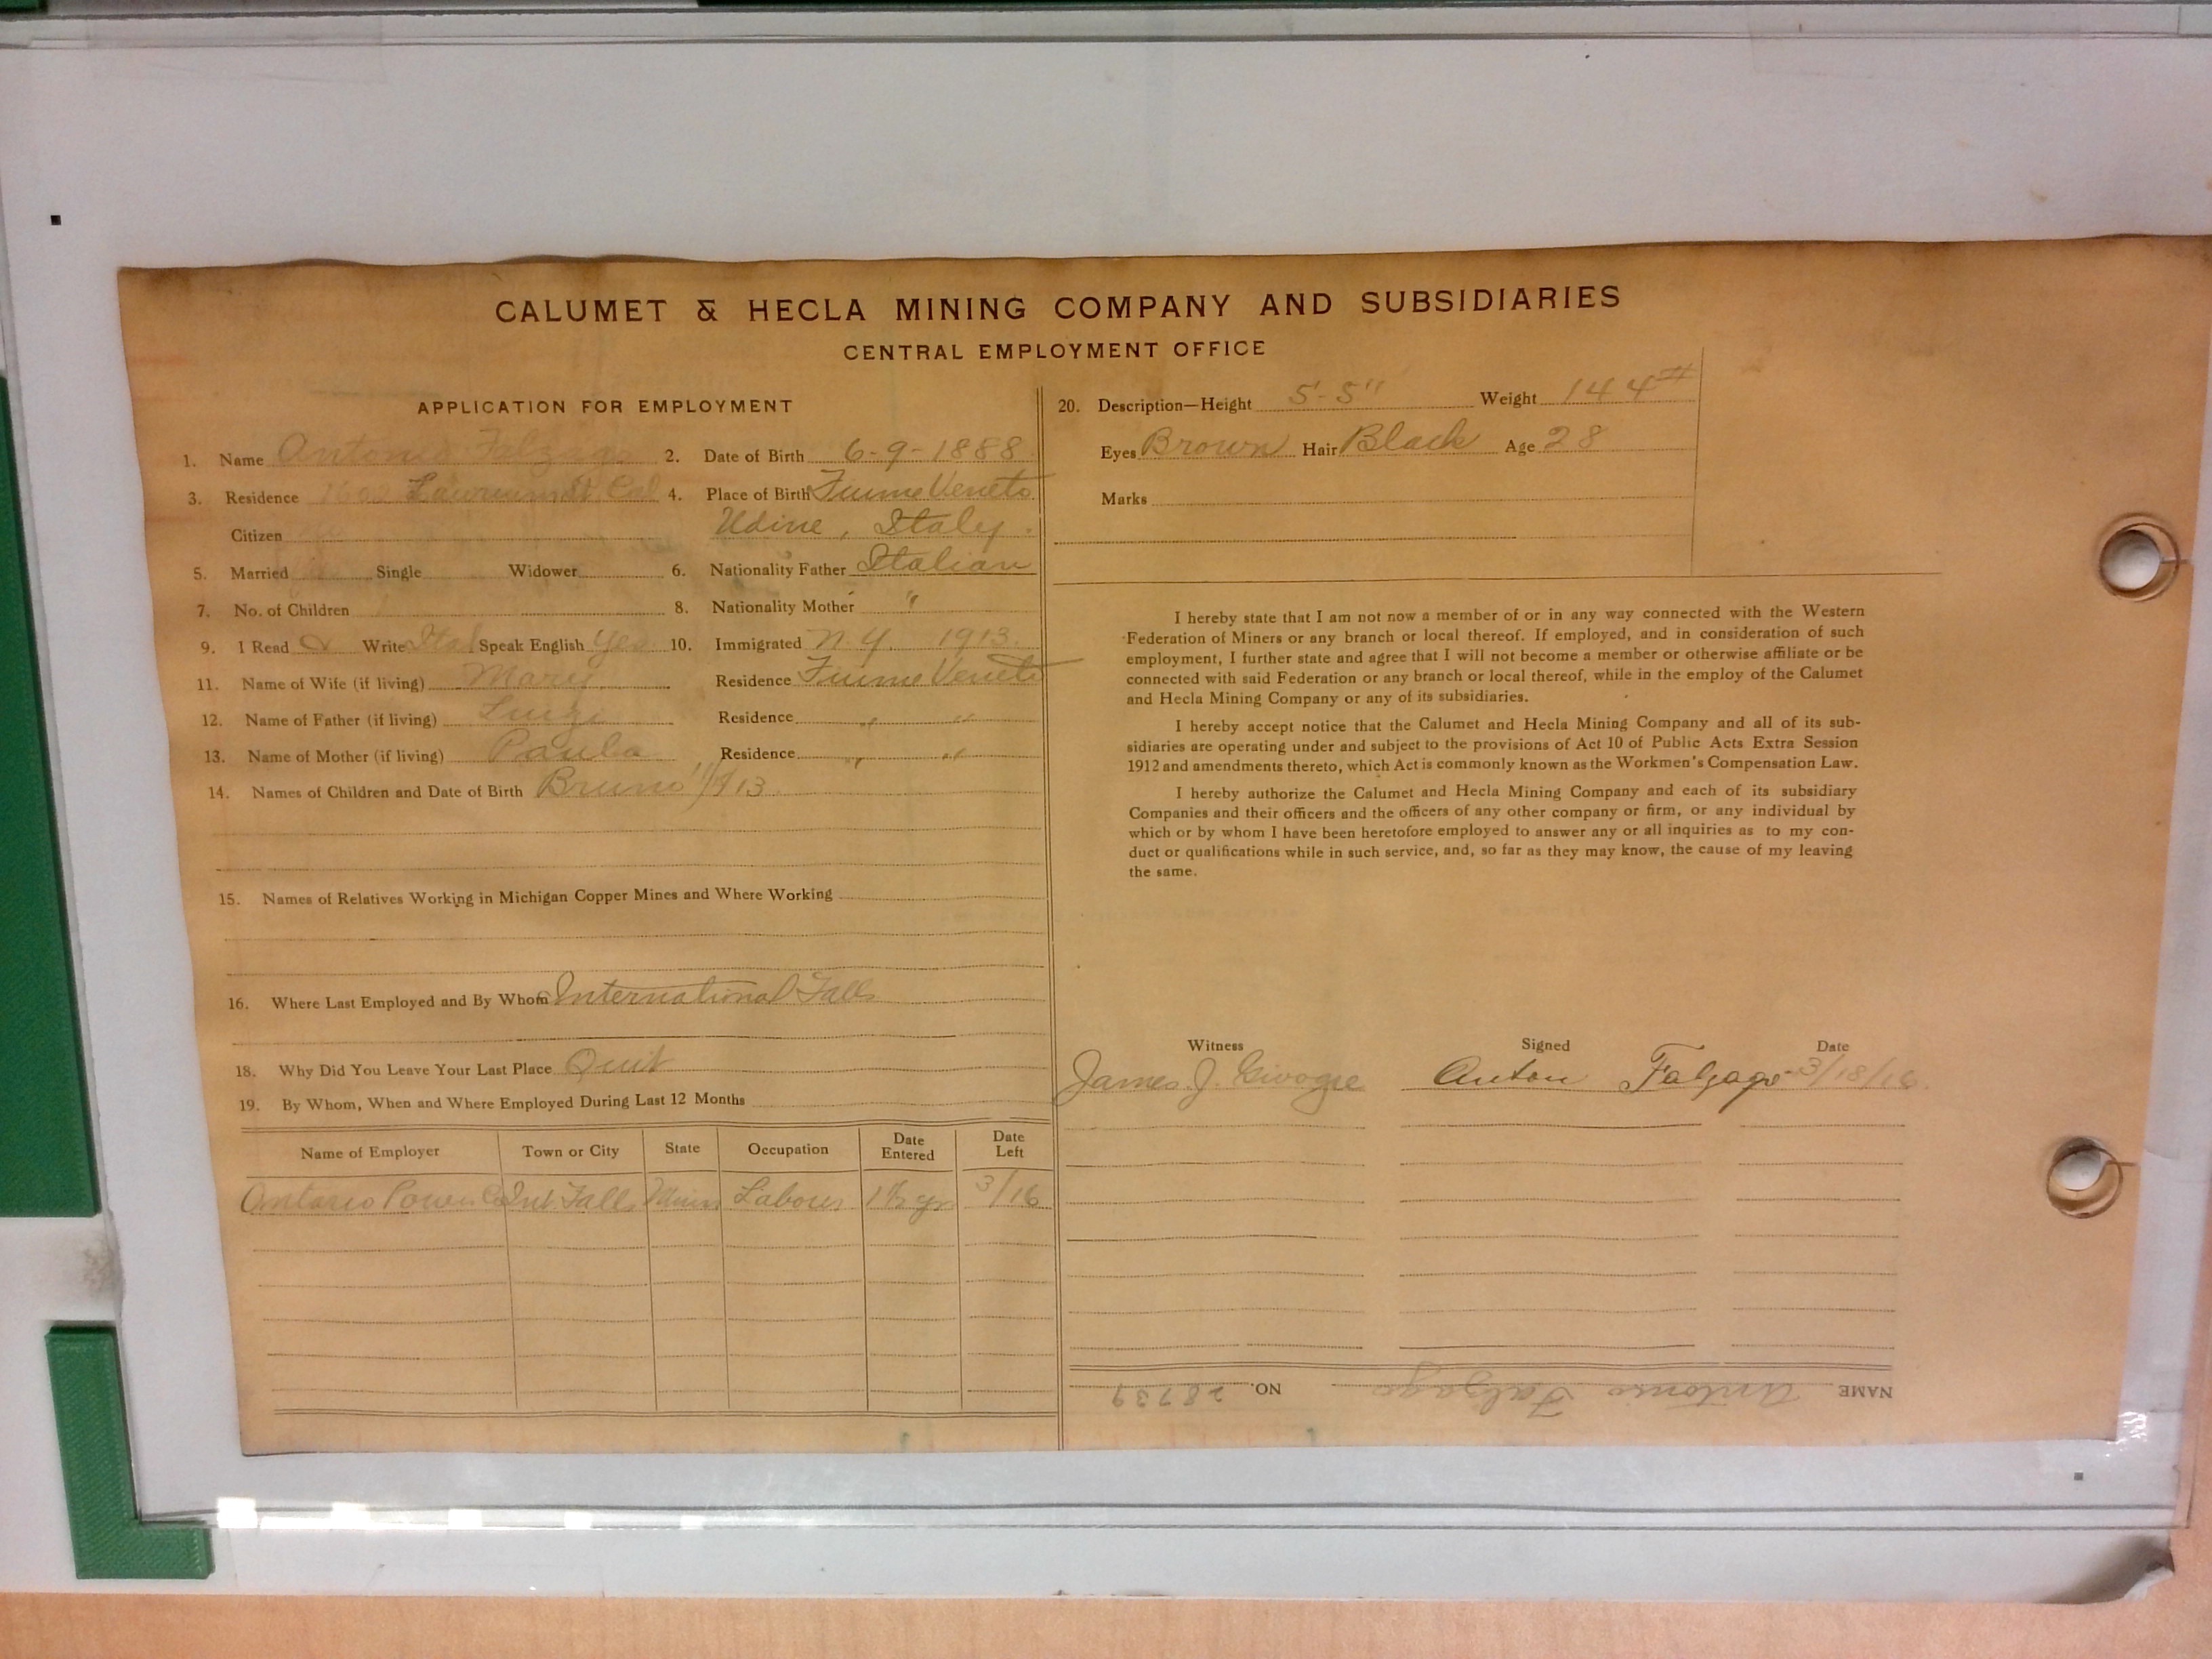 CALUMET & HECLA MINING COMPANY AND SUBSIDIARIES
CENTRAL EMPLOYMENT OFFICE
APPLICATION FOR EMPLOYMENT
1. Name Antonio Falzago 2. Date of Birth 6-9-1888
3. Residence Cal 4. Place of Birth Fiume Veneto
Citizen Udine, Italy.
5. Married Single Widower 6. Nationality Father Italian
7. No. of Children 8. Nationality Mother "
9. I Read & Write Ital Speak English Yes 10. Immigrated N.Y. 1913.
11. Name of Wife (if living) Mary Residence Fiume Veneto
12. Name of Father (if living) Luigi Residence " "
13. Name of Mother (if living) Paula Residence " "
14. Names of Children and Date of Birth Bruno
15. Names of Relatives Working in Michigan Copper Mines and Where Working
16. Where Last Employed and By Whom International Falls
18. Why Did You Leave Your Last Place Quit
19. By Whom, When and Where Employed During Last 12 Months
Name of Employer Town or City State Occupation Date Entered Date Left
Ontario Power Co Int. Falls Minn Laborer 1½ yr 3/16
20. Description—Height 5'-5" Weight 144#
Eyes Brown Hair Black Age 28
Marks
I hereby state that I am not now a member of or in any way connected with the Western
Federation of Miners or any branch or local thereof. If employed, and in consideration of such
employment, I further state and agree that I will not become a member or otherwise affiliate or be
connected with said Federation or any branch or local thereof, while in the employ of the Calumet
and Hecla Mining Company or any of its subsidiaries.
I hereby accept notice that the Calumet and Hecla Mining Company and all of its sub-
sidiaries are operating under and subject to the provisions of Act 10 of Public Acts Extra Session
1912 and amendments thereto, which Act is commonly known as the Workmen's Compensation Law.
I hereby authorize the Calumet and Hecla Mining Company and each of its subsidiary
Companies and their officers and the officers of any other company or firm, or any individual by
which or by whom I have been heretofore employed to answer any or all inquiries as to my con-
duct or qualifications while in such service, and, so far as they may know, the cause of my leaving
the same.
Witness Signed Date
James J. Anton Falzago 3/18/16
NAME Antonio Falzago NO. 28739